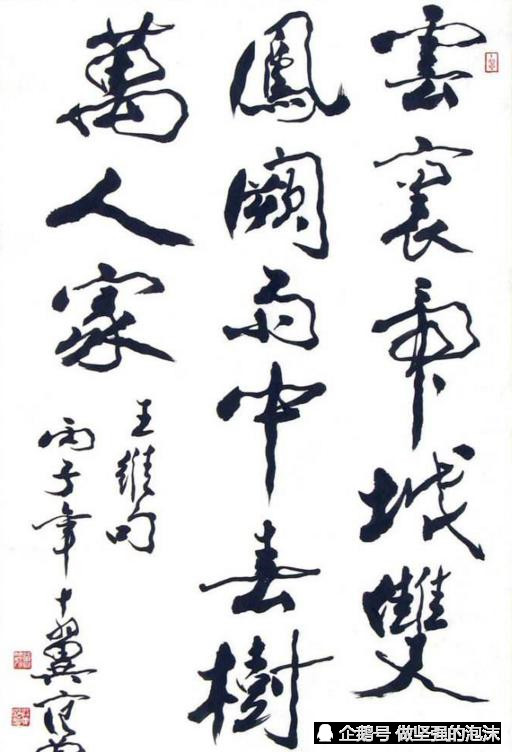 雲裏帝城雙
鳳闕雨中春樹
萬人家
王維句
丙子年十翼范曾
企鹅号 做坚强的泡沫